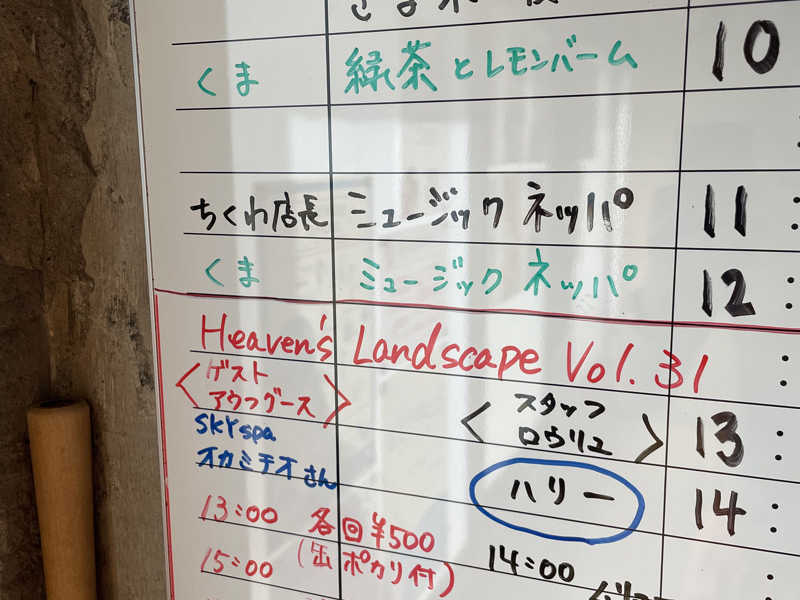 くま 緑茶とレモンバーム 10
ちくわ店長 ミュージック ネッパ 11:
くま ミュージック ネッパ 12:
Heaven's Landscape Vol.31
<ゲスト
アウフグース>
<スタッフ
ロウリュ> 13:
skyspa
オカミチオさん
ハリー 14:
13:00 各回¥500
15:00 (缶ポカリ付)
14:00